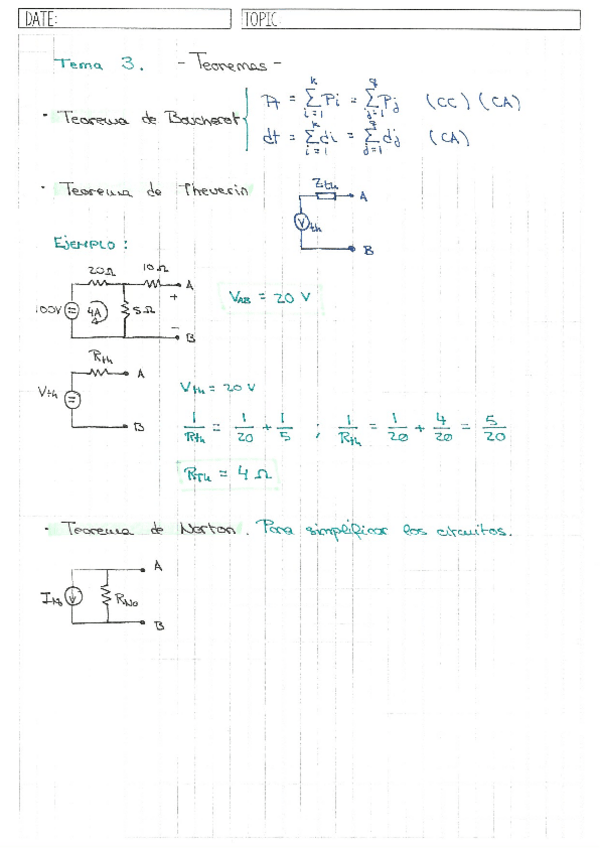 DATE:
TOPIC:
Tema 3. - Teoremas -
· Teorema de Boucherot { Pt = ∑(i=1, k) Pi = ∑(j=1, q) Pj (CC) (CA)
dt = ∑(i=1, k) di = ∑(j=1, q) dj (CA)
· Teorema de Thevenin
Zth
A
Vth
B
EJEMPLO:
20Ω 10Ω A
+
100V 4A 5Ω
-
B
VAB = 20 V
Rth
A
Vth
B
Vth = 20 V
1/Rth = 1/20 + 1/5 ; 1/Rth = 1/20 + 4/20 = 5/20
RTh = 4 Ω
· Teorema de Norton. Para simplificar los circuitos.
A
INo RNo
B